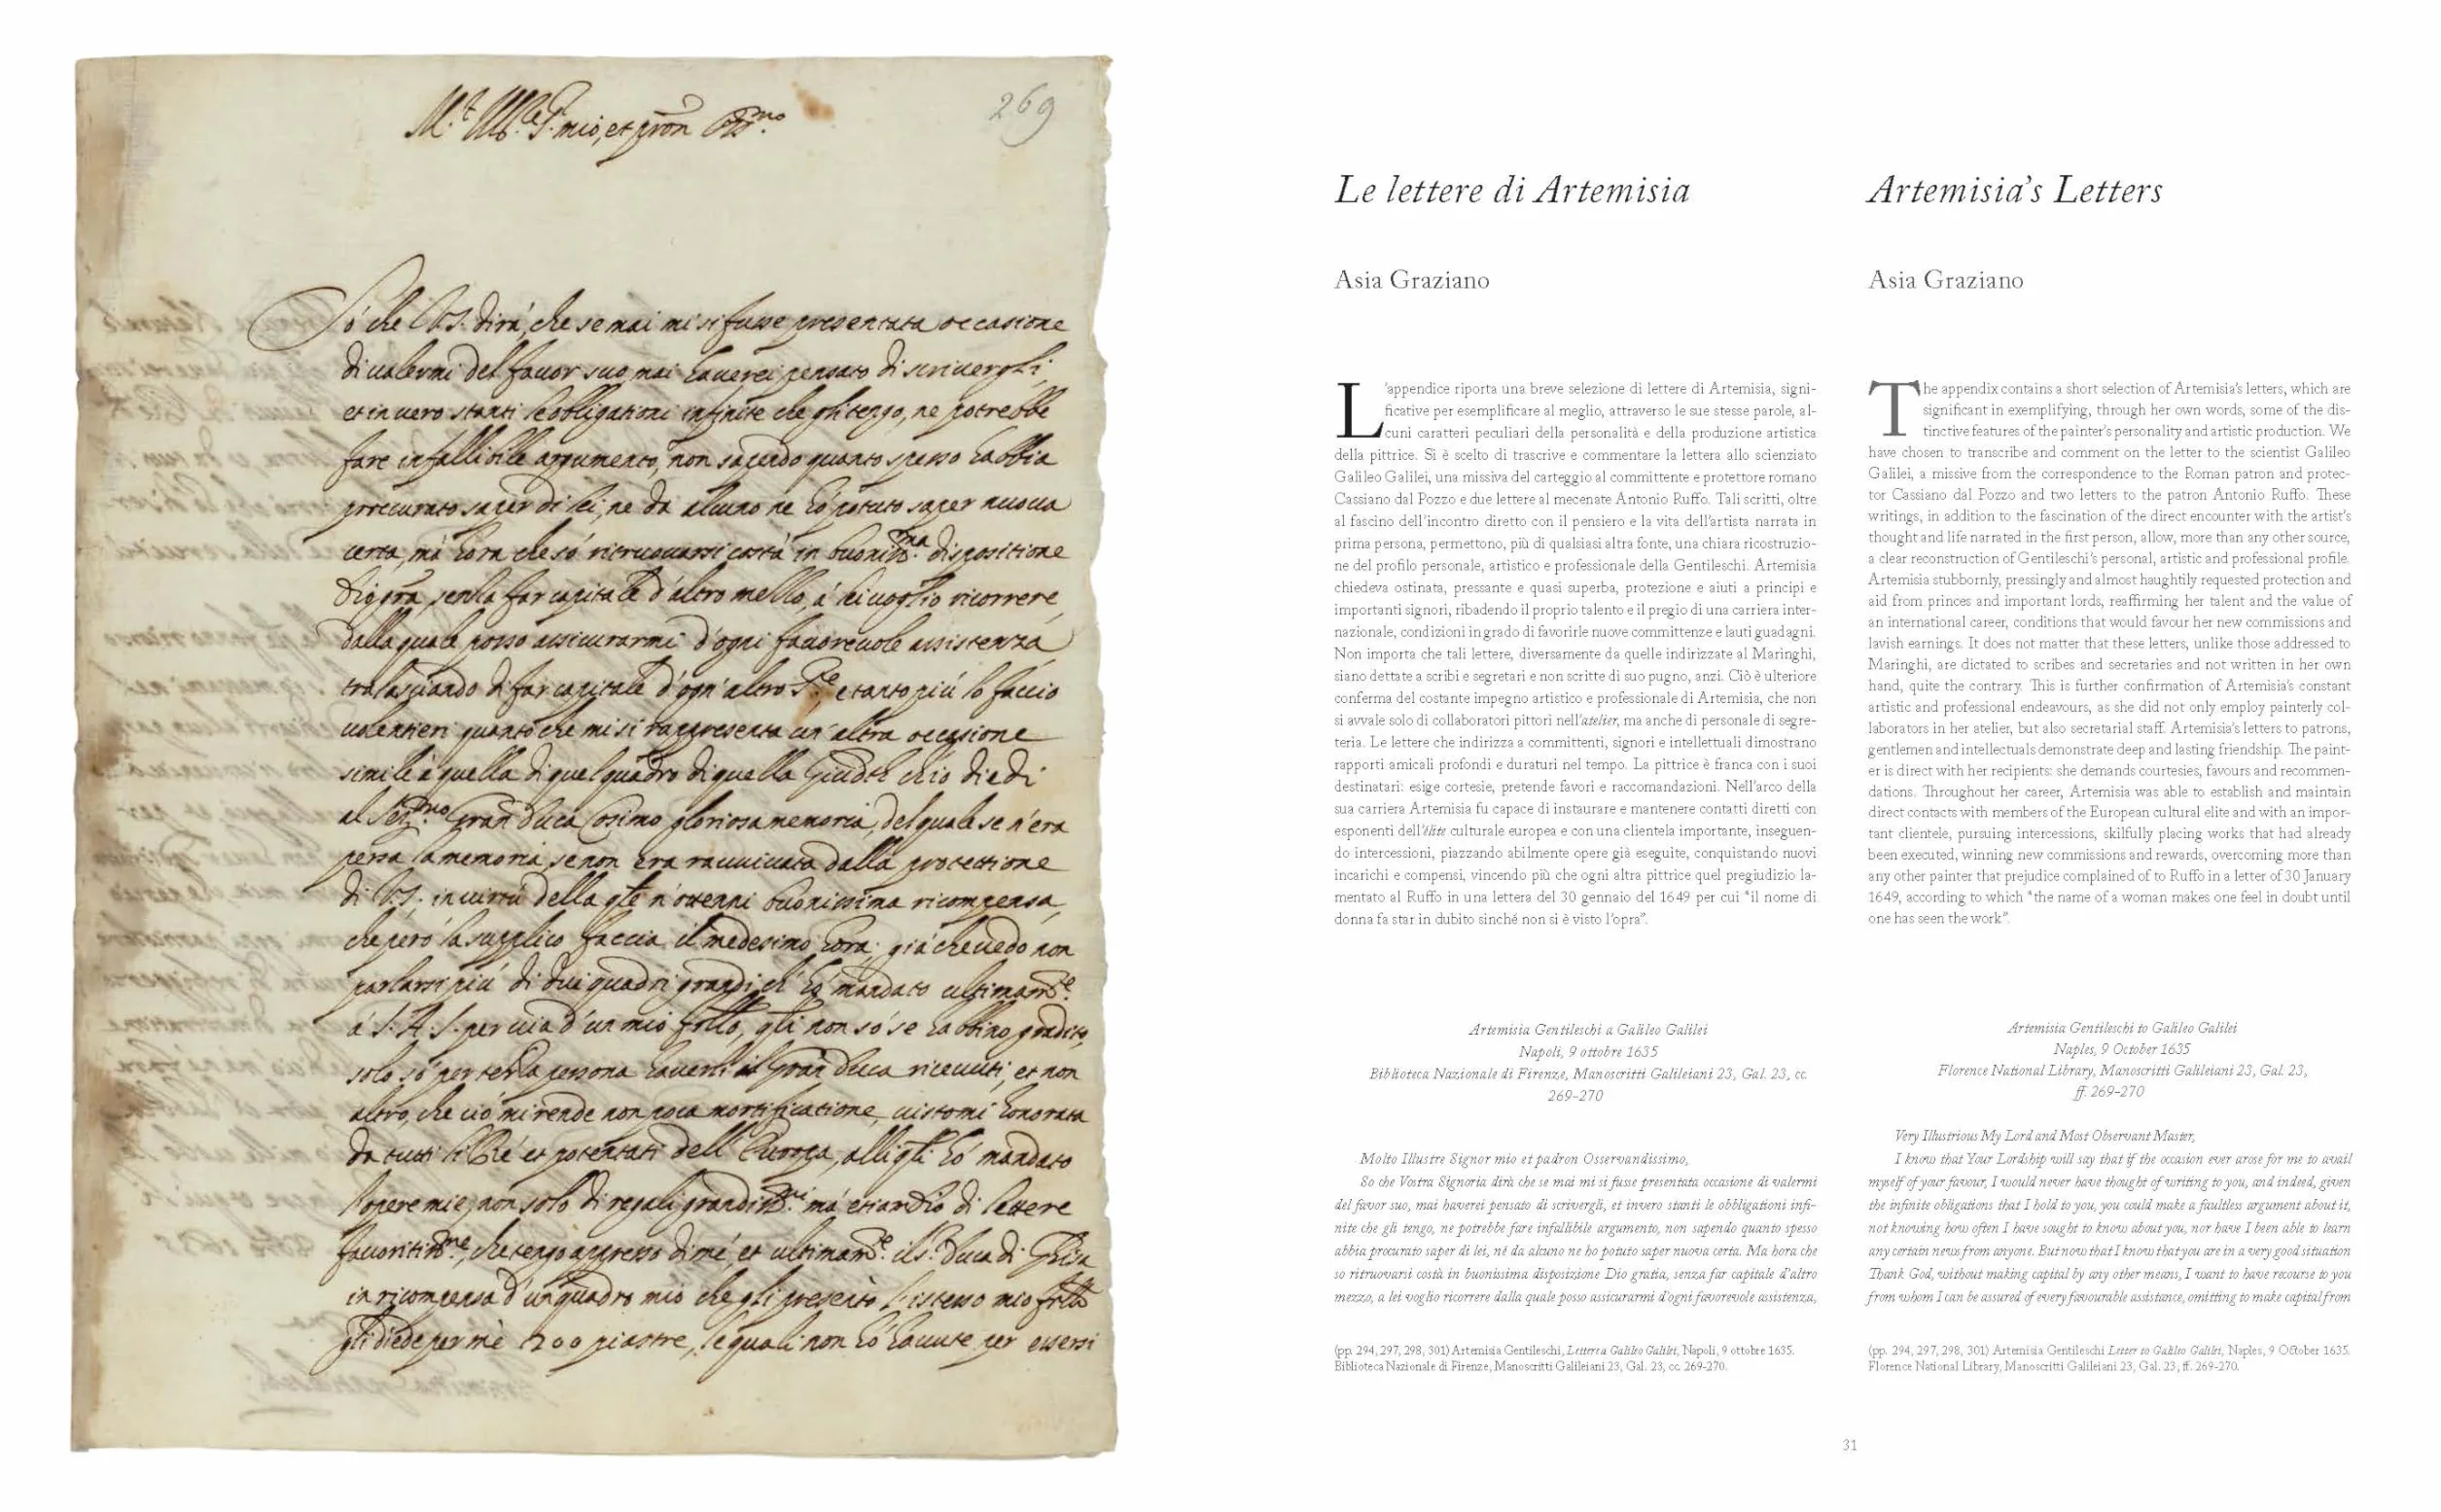 269
M.t Ill.re S.r mio, et pron Oss.mo
Só che V.S. dirá, che se mai mi si fusse presentata occasione
di valermi del favor suo, mai haverei pensato di scriverghli,
et in vero stanti le obligationi infinite che gli tengo, ne potrebbe
fare infallibile argumento, non sapendo quanto spesso habbia
procurato saper di lei, ne da alcuno ne hó potuto saper nuova
certa, má hora che só ritruovarsi costá in buoniss.ma dispositione
Dio gra, senza far capitale d'altro mezzo, á lei voglio ricorrere,
dalla quale posso assicurarmi d'ogni favorevole assistenza
tralasciando di far capitale d'ogn'altro S.re, e tanto piú lo faccio
volentieri quanto che mi si rappresenta un'altra occasione
simile á quella di quel quadro di quella Giudit ch'io diedi
al Ser.mo Gran Duca Cosimo gloriosa memoria, del quale se n'era
persa la memoria, se non era ravvivata dalla protettione
di V.S. in virtú della qle n'ottenni buonissima ricompensa,
che peró la supplico faccia il medesimo hora, giá che vedo non
parlarsi piú di dui quadri grandi ch'hó mandato ultimam.te
á S.A.S. per via d'un mio frello, qli non só se habbino gradito,
solo só per terza persona haverli il Gran Duca ricevuti, et non
altro, che ció mi rende non poca mortificatione, vistomi honorata
da tutti li Ré et potentati dell'Europa, alli qli hó mandato
l'opere mie, non solo di regali grandiss.mi má etiandio di lettere
favoritiss.me, che tengo appresso di mé, et ultimam.te il S.r Duca di Ghisa
in ricompensa d'un quadro mio che gli presentó l'istesso mio frello
gli diede per mé 200 piastre, le quali non hó havute per essersi
Le lettere di Artemisia
Asia Graziano
L'appendice riporta una breve selezione di lettere di Artemisia, signi-
ficative per esemplificare al meglio, attraverso le sue stesse parole, al-
cuni caratteri peculiari della personalità e della produzione artistica
della pittrice. Si è scelto di trascrivere e commentare la lettera allo scienziato
Galileo Galilei, una missiva del carteggio al committente e protettore romano
Cassiano dal Pozzo e due lettere al mecenate Antonio Ruffo. Tali scritti, oltre
al fascino dell'incontro diretto con il pensiero e la vita dell'artista narrata in
prima persona, permettono, più di qualsiasi altra fonte, una chiara ricostruzio-
ne del profilo personale, artistico e professionale della Gentileschi. Artemisia
chiedeva ostinata, pressante e quasi superba, protezione e aiuti a principi e
importanti signori, ribadendo il proprio talento e il pregio di una carriera inter-
nazionale, condizioni in grado di favorirle nuove committenze e lauti guadagni.
Non importa che tali lettere, diversamente da quelle indirizzate al Maringhi,
siano dettate a scribi e segretari e non scritte di suo pugno, anzi. Ciò è ulteriore
conferma del costante impegno artistico e professionale di Artemisia, che non
si avvale solo di collaboratori pittori nell'atelier, ma anche di personale di segre-
teria. Le lettere che indirizza a committenti, signori e intellettuali dimostrano
rapporti amicali profondi e duraturi nel tempo. La pittrice è franca con i suoi
destinatari: esige cortesie, pretende favori e raccomandazioni. Nell'arco della
sua carriera Artemisia fu capace di instaurare e mantenere contatti diretti con
esponenti dell'élite culturale europea e con una clientela importante, inseguen-
do intercessioni, piazzando abilmente opere già eseguite, conquistando nuovi
incarichi e compensi, vincendo più che ogni altra pittrice quel pregiudizio la-
mentato al Ruffo in una lettera del 30 gennaio del 1649 per cui "il nome di
donna fa star in dubito sinché non si è visto l'opra".
Artemisia Gentileschi a Galileo Galilei
Napoli, 9 ottobre 1635
Biblioteca Nazionale di Firenze, Manoscritti Galileiani 23, Gal. 23, cc.
269-270
Molto Illustre Signor mio et padron Osservandissimo,
So che Vostra Signoria dirà che se mai mi si fusse presentata occasione di valermi
del favor suo, mai haverei pensato di scrivergli, et invero stanti le obbligationi infi-
nite che gli tengo, ne potrebbe fare infallibile argomento, non sapendo quanto spesso
abbia procurato saper di lei, né da alcuno ne ho potuto saper nuova certa. Ma hora che
so ritruovarsi costà in buonissima disposizione Dio gratia, senza far capitale d'altro
mezzo, a lei voglio ricorrere dalla quale posso assicurarmi d'ogni favorevole assistenza,
(pp. 294, 297, 298, 301) Artemisia Gentileschi, Lettera a Galileo Galilei, Napoli, 9 ottobre 1635.
Biblioteca Nazionale di Firenze, Manoscritti Galileiani 23, Gal. 23, cc. 269-270.
Artemisia's Letters
Asia Graziano
The appendix contains a short selection of Artemisia's letters, which are
significant in exemplifying, through her own words, some of the dis-
tinctive features of the painter's personality and artistic production. We
have chosen to transcribe and comment on the letter to the scientist Galileo
Galilei, a missive from the correspondence to the Roman patron and protec-
tor Cassiano dal Pozzo and two letters to the patron Antonio Ruffo. These
writings, in addition to the fascination of the direct encounter with the artist's
thought and life narrated in the first person, allow, more than any other source,
a clear reconstruction of Gentileschi's personal, artistic and professional profile.
Artemisia stubbornly, pressingly and almost haughtily requested protection and
aid from princes and important lords, reaffirming her talent and the value of
an international career, conditions that would favour her new commissions and
lavish earnings. It does not matter that these letters, unlike those addressed to
Maringhi, are dictated to scribes and secretaries and not written in her own
hand, quite the contrary. This is further confirmation of Artemisia's constant
artistic and professional endeavours, as she did not only employ painterly col-
laborators in her atelier, but also secretarial staff. Artemisia's letters to patrons,
gentlemen and intellectuals demonstrate deep and lasting friendship. The paint-
er is direct with her recipients: she demands courtesies, favours and recommen-
dations. Throughout her career, Artemisia was able to establish and maintain
direct contacts with members of the European cultural elite and with an impor-
tant clientele, pursuing intercessions, skilfully placing works that had already
been executed, winning new commissions and rewards, overcoming more than
any other painter that prejudice complained of to Ruffo in a letter of 30 January
1649, according to which "the name of a woman makes one feel in doubt until
one has seen the work".
Artemisia Gentileschi to Galileo Galilei
Naples, 9 October 1635
Florence National Library, Manoscritti Galileiani 23, Gal. 23,
ff. 269-270
Very Illustrious My Lord and Most Observant Master,
I know that Your Lordship will say that if the occasion ever arose for me to avail
myself of your favour, I would never have thought of writing to you, and indeed, given
the infinite obligations that I hold to you, you could make a faultless argument about it,
not knowing how often I have sought to know about you, nor have I been able to learn
any certain news from anyone. But now that I know that you are in a very good situation
Thank God, without making capital by any other means, I want to have recourse to you
from whom I can be assured of every favourable assistance, omitting to make capital from
(pp. 294, 297, 298, 301) Artemisia Gentileschi Letter to Galileo Galilei, Naples, 9 October 1635.
Florence National Library, Manoscritti Galileiani 23, Gal. 23, ff. 269-270.
31